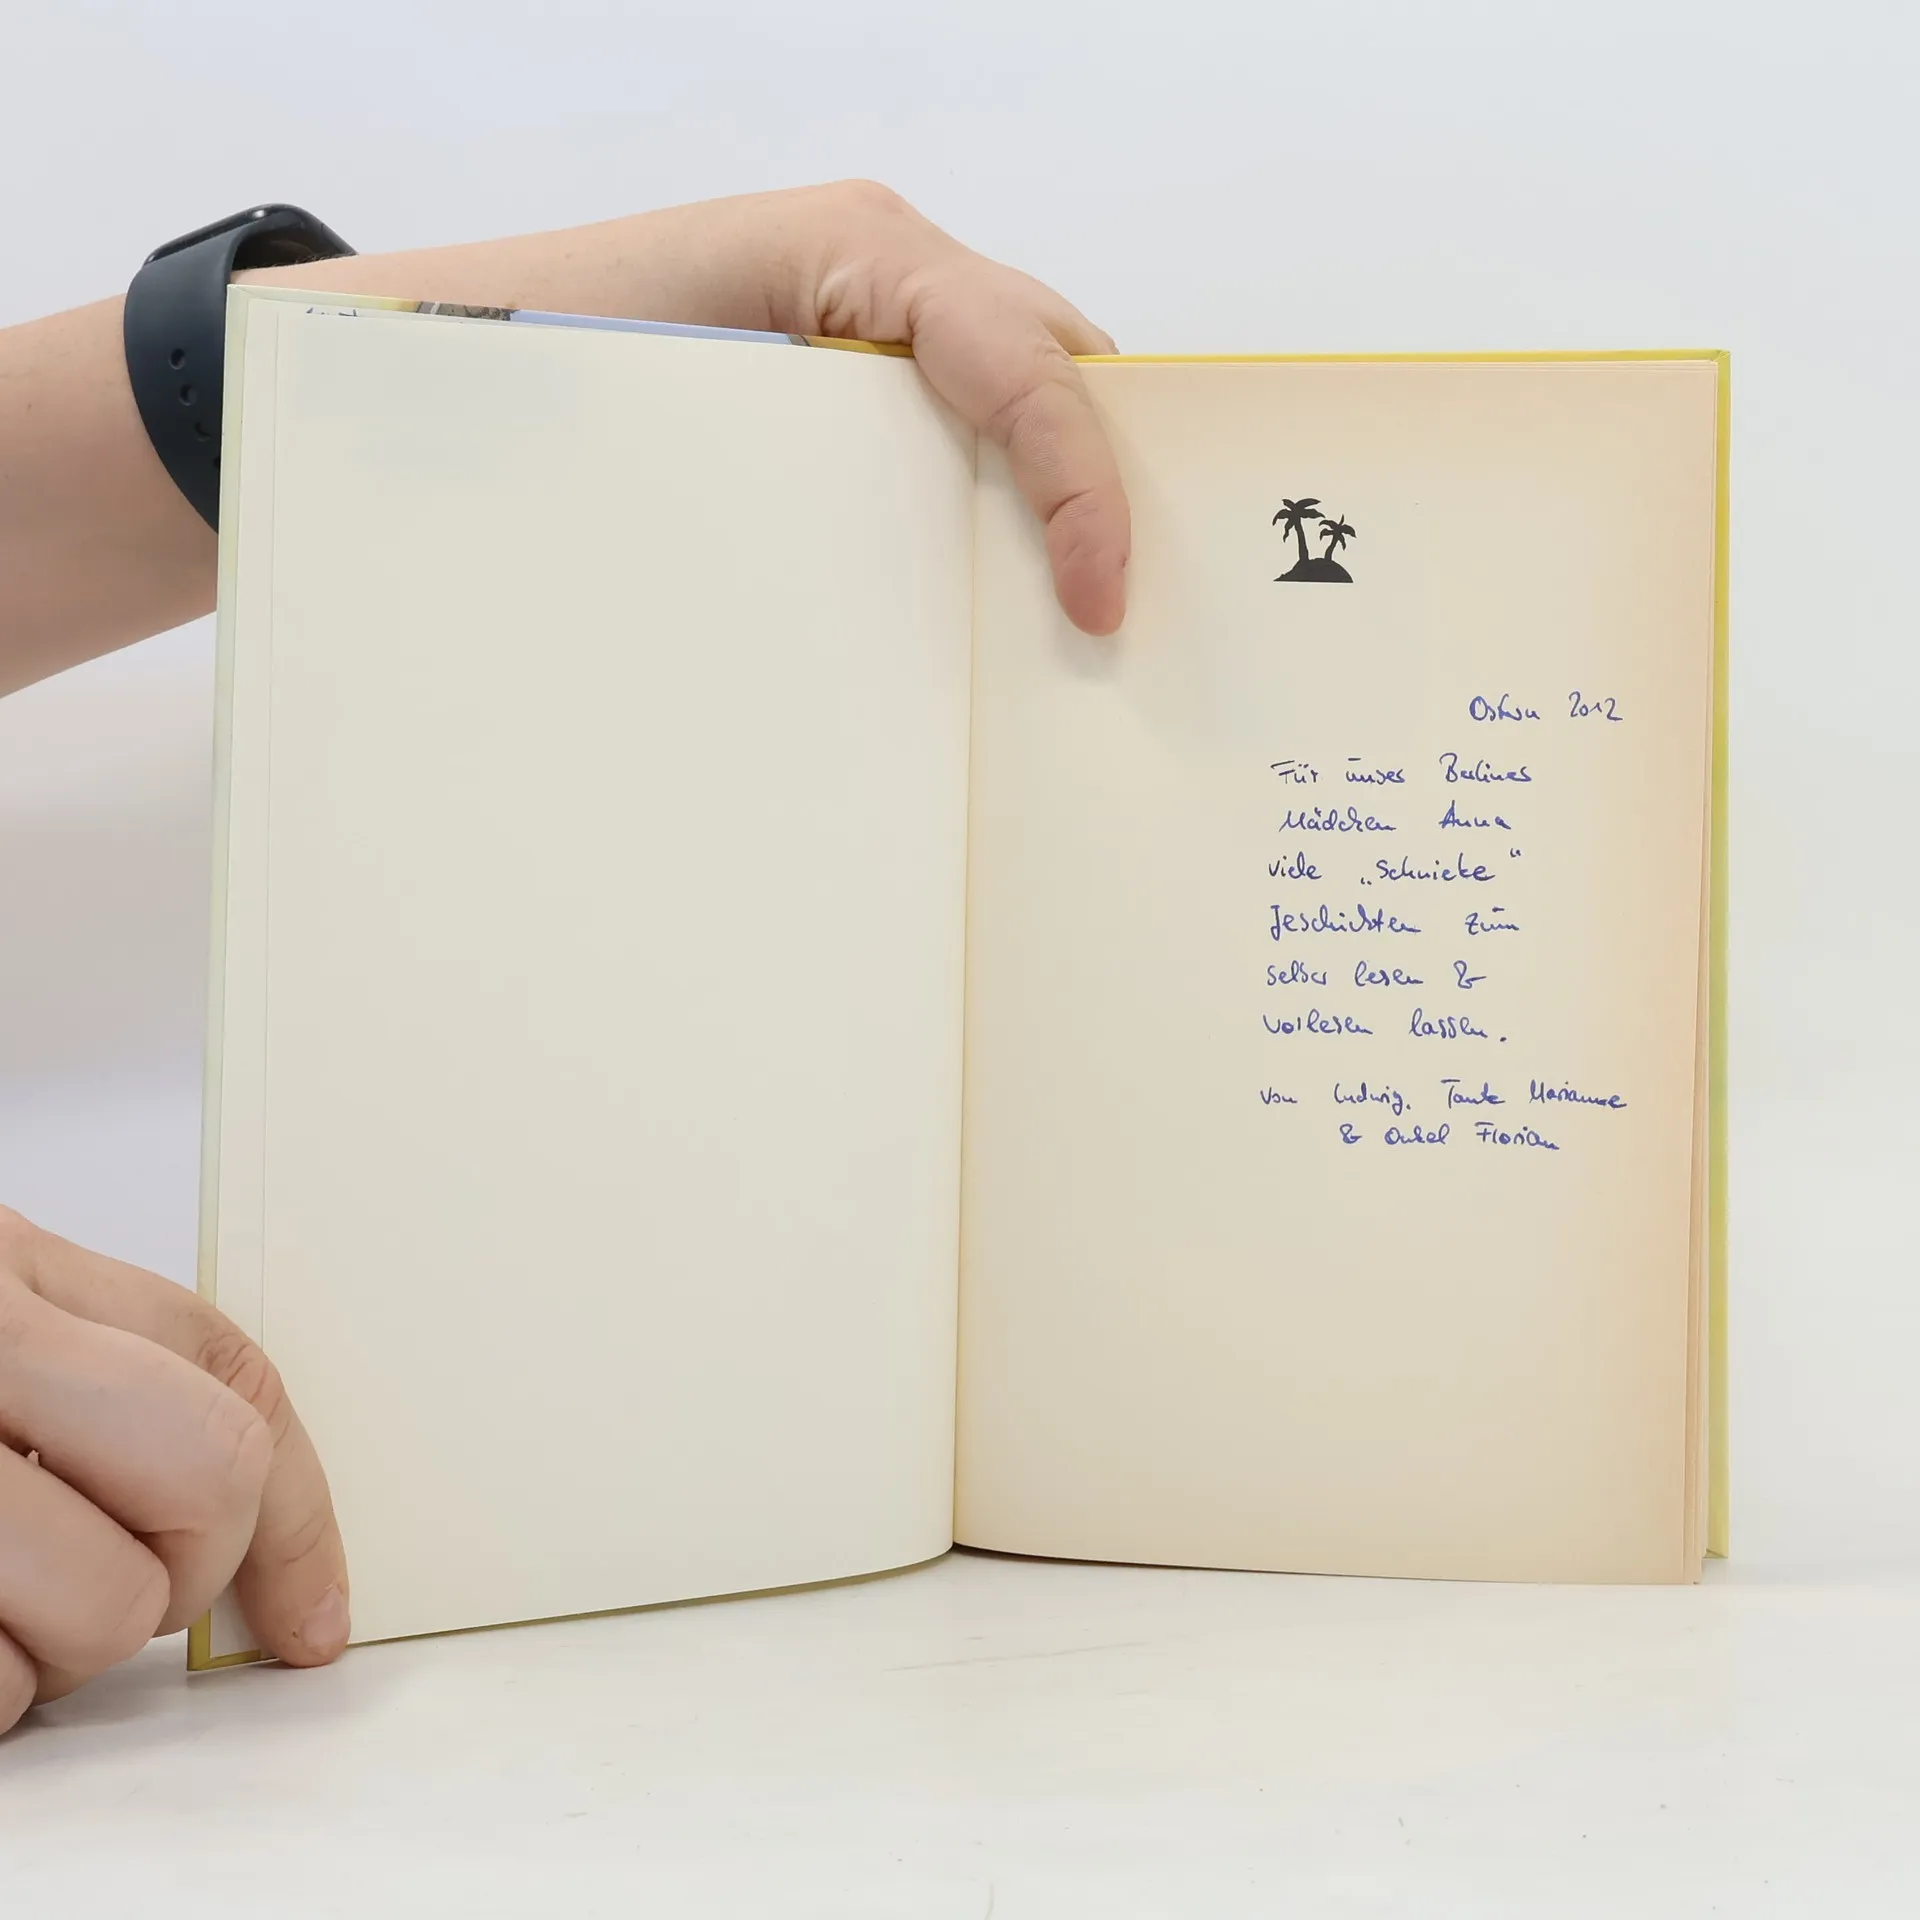 Ostern 2012
Für unser Berliner
Mädchen Anna
viele „Schnieke“
Jeschichten zum
selber lesen &
vorlesen lassen.
von Ludwig, Tante Marianne
& Onkel Florian